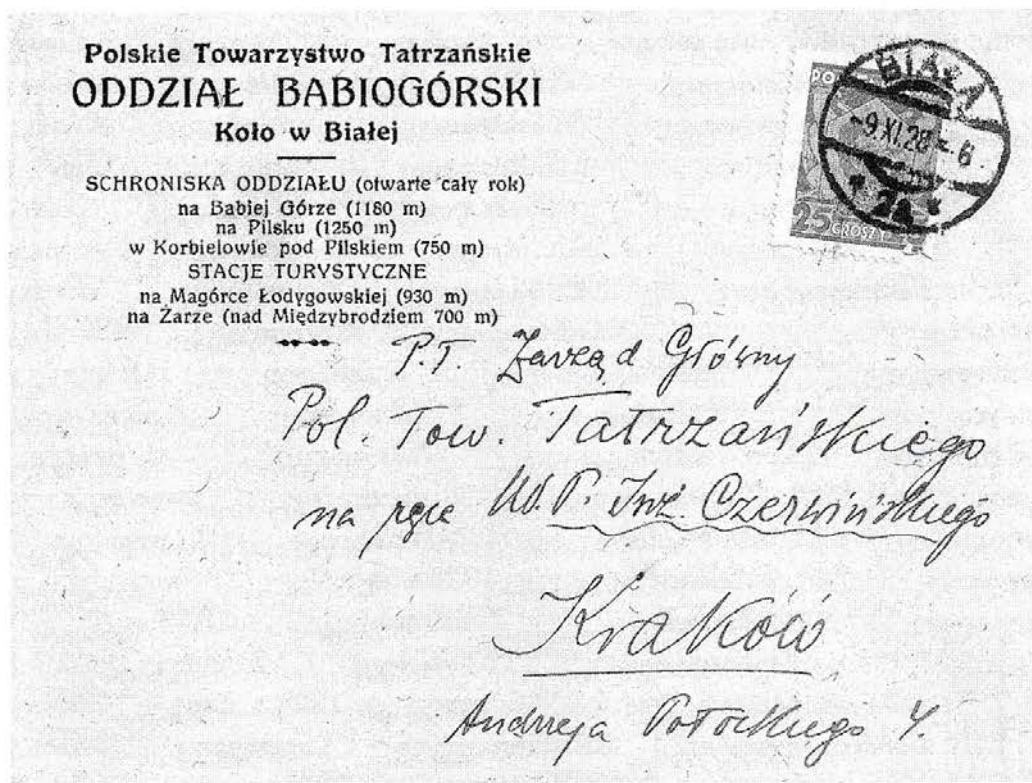 Polskie Towarzystwo Tatrzańskie
ODDZIAŁ BABIOGÓRSKI
Koło w Białej
SCHRONISKA ODDZIAŁU (otwarte cały rok)
na Babiej Górze (1180 m)
na Pilsku (1250 m)
w Korbielowie pod Pilskiem (750 m)
STACJE TURYSTYCZNE
na Magórce Łodygowskiej (930 m)
na Żarze (nad Międzybrodziem 700 m)
BIAŁA
-9.XI.28 = 6
* 2a *
25 GROSZY
P.T. Zarząd Główny
Pol. Tow. Tatrzańskiego
na ręce WP. Inż. Czerwińskiego
Kraków
Andrzeja Potockiego 4.